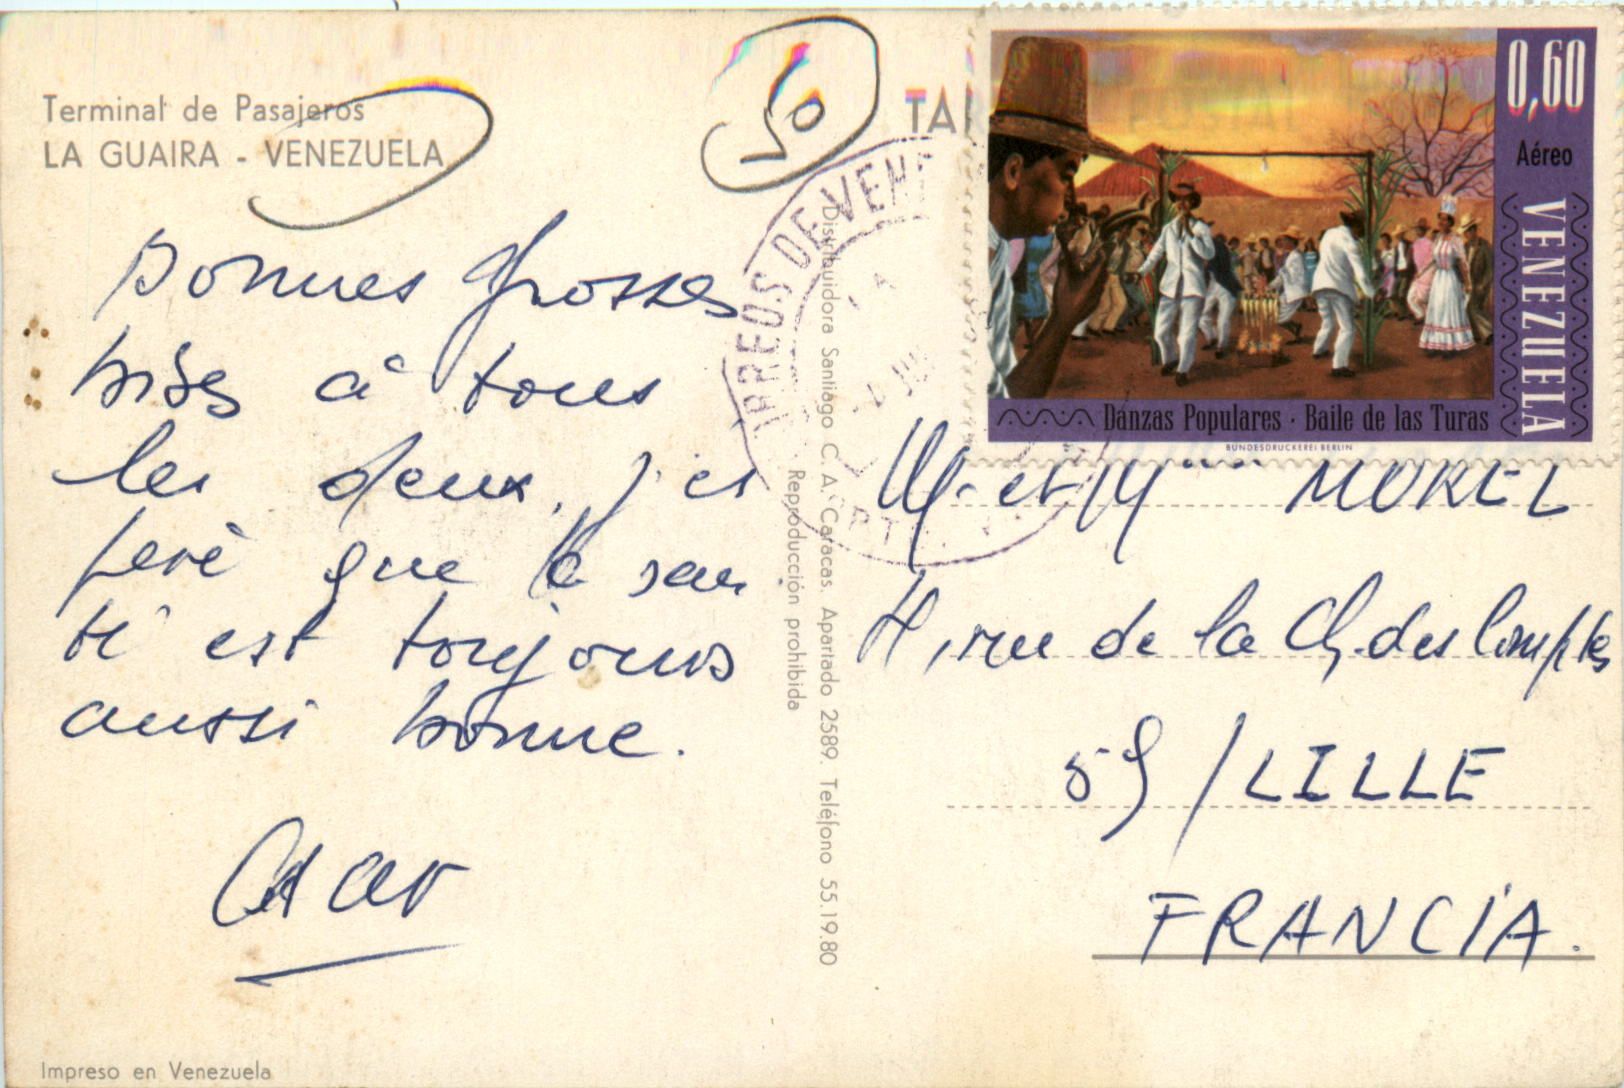 Terminal de Pasajeros
LA GUAIRA - VENEZUELA
50
Bonnes grosses
bises à tous
les deux, j'es
père que la san
té est toujours
aussi bonne.
Impreso en Venezuela
Distribuidora Santiago C. A. Caracas. Apartado 2589. Teléfono 55.19.80
Reproducción prohibida
TAR
CORREOS DE VENE
0,60
Aéreo
VENEZUELA
Danzas Populares · Baile de las Turas
BUNDESDRUCKEREI BERLIN
M. et Mme MOREL
rue de la Ch. des Comptes
59/LILLE
FRANCIA.